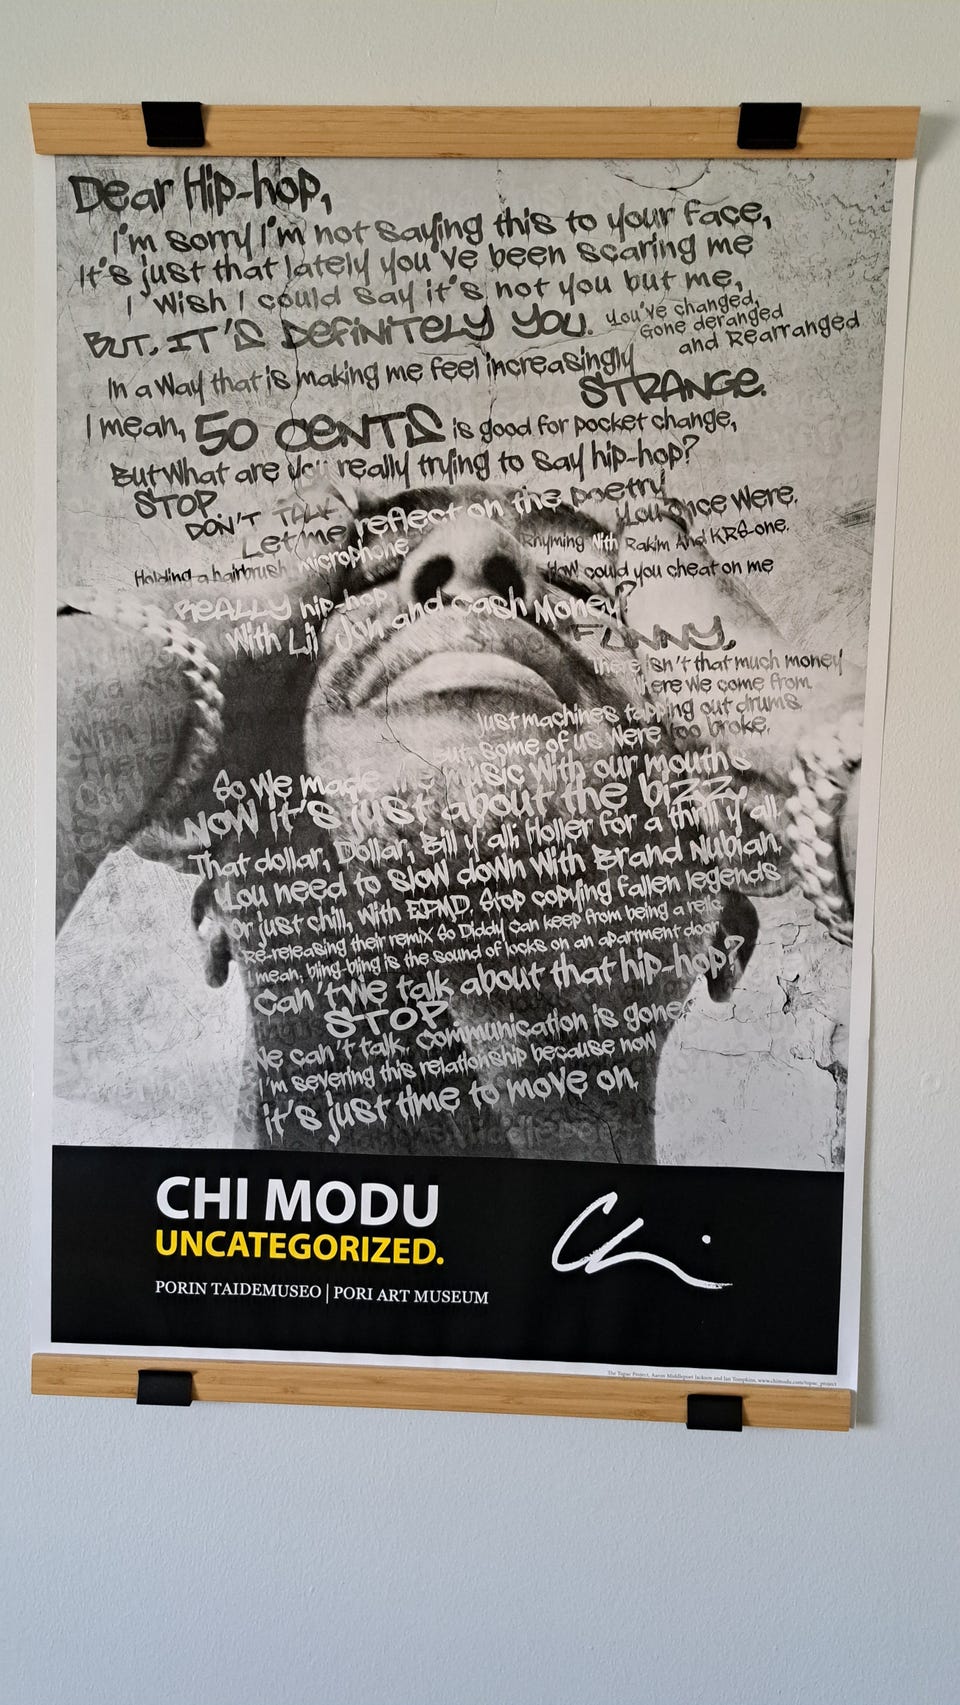 Dear Hip-hop,
I'm sorry I'm not saying this to your face,
It's just that lately you've been scaring me
I wish I could say it's not you but me,
BUT, IT'S DEFINITELY YOU. You've changed,
Gone deranged
and Rearranged
In a way that is making me feel increasingly
STRANGE.
I mean, 50 CENTS is good for pocket change,
But what are you really trying to say hip-hop?
STOP.
DON'T TALK
Let me reflect on the poetry
You once were.
Rhyming with Rakim And KRS-one.
Holding a hairbrush microphone
How could you cheat on me
REALLY hip-hop
With Lil' Jon and Cash Money?
FUNNY,
There isn't that much money
Where we come from.
Just machines tapping out drums.
But, some of us were too broke,
So we made the music with our mouths
NOW it's just about the bizzy
That dollar, Dollar, Bill y'all; Holler for a thrifty all
You need to slow down with Brand Nubian,
Or just chill, with EPMD. Stop copying fallen legends
Re-releasing their remix so Diddy can keep from being a relic.
I mean, bling-bling is the sound of locks on an apartment door
Can't we talk about that hip-hop?
STOP
We can't talk. Communication is gone.
I'm severing this relationship because now
it's just time to move on.
CHI MODU
UNCATEGORIZED.
Chi
PORIN TAIDEMUSEO | PORI ART MUSEUM
The Tupac Project, Aaron Middlepoet Jackson and Ian Tompkins, www.chimodu.com/tupac_project